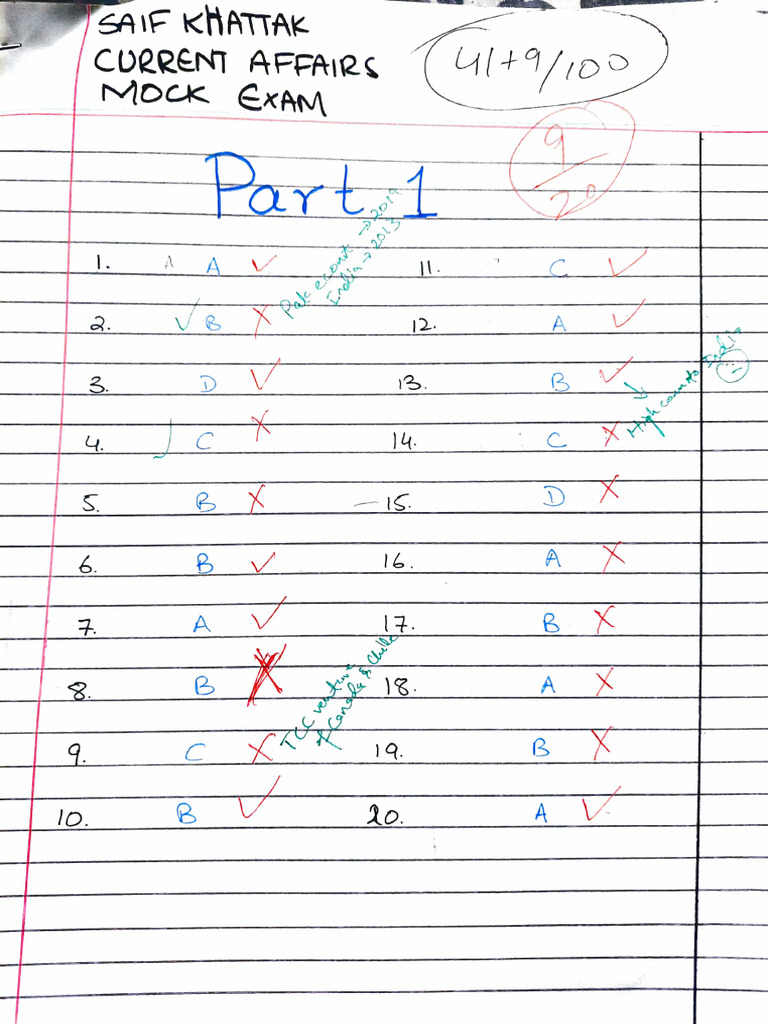 SAIF KHATTAK
CURRENT AFFAIRS
MOCK EXAM
41+9/100
9/20
Part 1
1. A A ✓
Pak econt → 2019
India → 2013
2. ✓ B X
3. D ✓
4. C X
5. B X
6. B ✓
7. A ✓
8. B X
9. C X
TCC venture
of Canada & Chille
10. B ✓
11. C ✓
12. A ✓
13. B ✓
High comm to India
14. C X
15. D X
16. A X
17. B X
18. A X
19. B X
20. A ✓